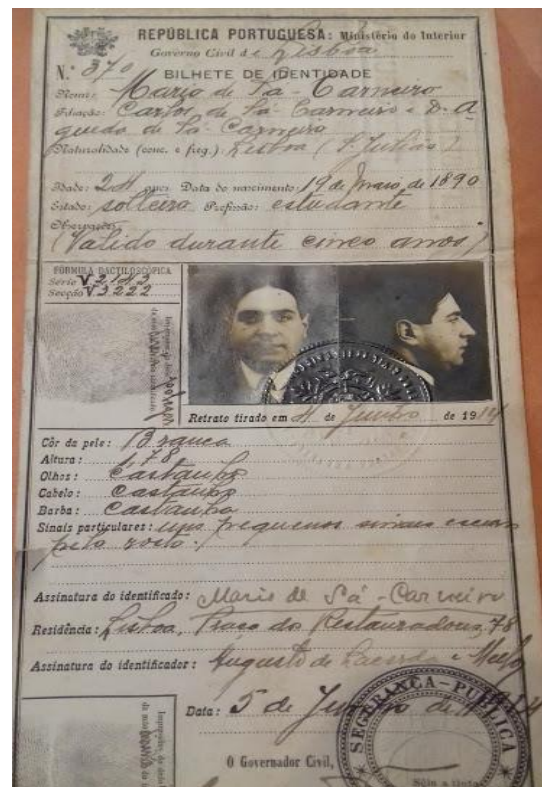 REPÚBLICA PORTUGUESA: Ministério do Interior
Governo Civil de Lisboa
N.º 370 BILHETE DE IDENTIDADE
Nome: Mario de Sá-Carneiro
Filiação: Carlos de Sá-Carneiro e D. A
gueda de Sá-Carneiro
Naturalidade (conc. e freg.): Lisboa (S. Julião)
Idade: 24 anos Data do nascimento: 19 de Maio de 1890
Estado: solteiro Profissão: estudante
(Valido durante cinco anos)
FÓRMULA DACTILOSCÓPICA
Série V 2
Secção V 3222
Retrato tirado em 4 de Junho de 1914
Côr da pele: Branca
Altura: 1,78
Olhos: Castanhos
Cabelo: Castanho
Barba: Castanha
Sinais particulares: uns pequenos sinais escuros
pelo rosto.
Assinatura do identificado: Mario de Sá-Carneiro
Residência: Lisboa, Praça dos Restauradores, 78
Assinatura do identificador: Augusto de Lacerda e Mello
Data: 5 de Junho de 1914
SEGURANÇA-PUBLICA
O Governador Civil,